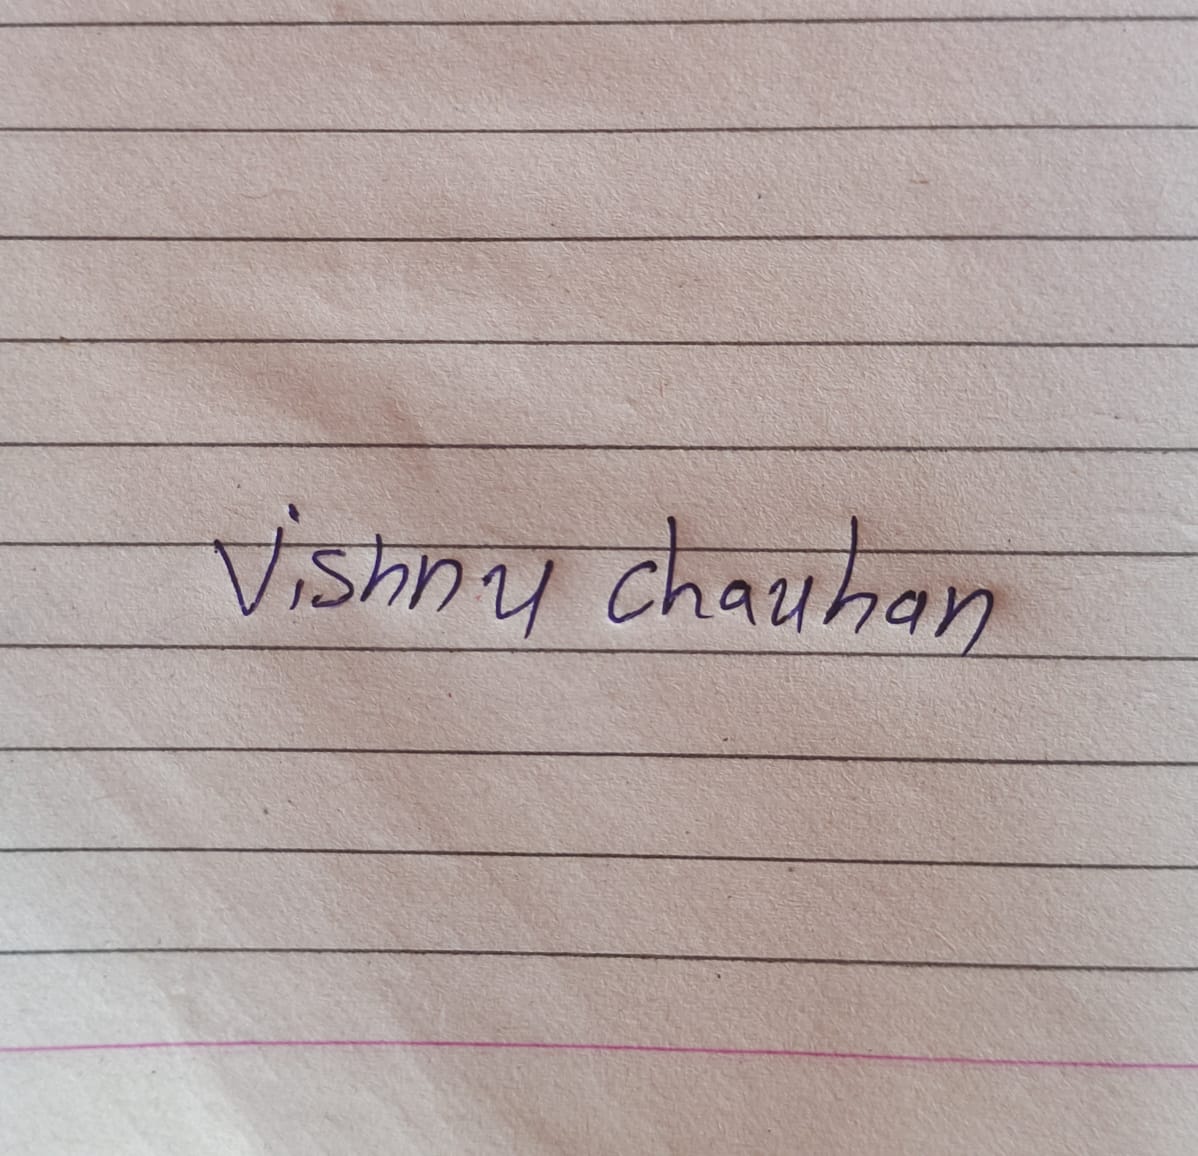 Vishnu chauhan